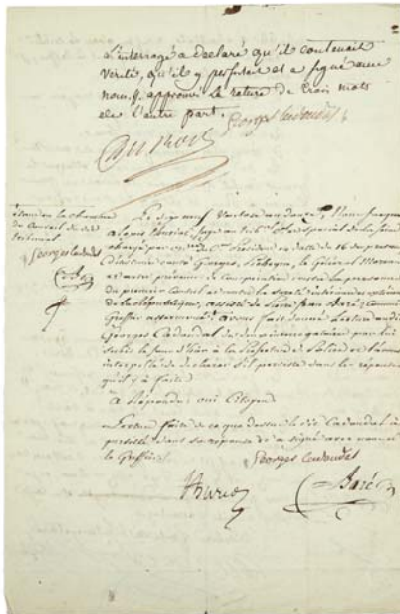 L'interrogé a Declaré qu'il contenait
verité, qu'il y persistait et a signé avec
nous. y approuvé la rature de trois mots
de l'autre part. Georges Cadoudal
étant en la chambre
du Conseil du dit
tribunal
Georges Cadoudal
Le dix neuf Ventose an douze, Nous Jacques
Alexis Thuriot, Juge au tribal Criminel spécial de la Seine
chargé par ordce du Cen Président en date du 16 du présent
d'instruire contre Georges, Pichegru, le Général Moreau
et autres prévenus de Conspiration contre la personne
du premier Consul et contre la sureté intérieure et extérieure
de la République, assisté de Jean Baré, commis
Greffier assermenté, avons fait donner lecture audit
Georges Cadoudal du dernier interrogatoire par lui
subi le jour d'hier à la Préfecture de Police et l'avons
interpellé de déclarer s'il persiste dans les réponses
qu'il y a faites
a Répondu: oui Citoyen
Lecture faite de ce que dessus le dit Cadoudal a
persisté dans sa réponse et a signé avec nous et
le Greffier.
Georges Cadoudal
Thuriot
Baré